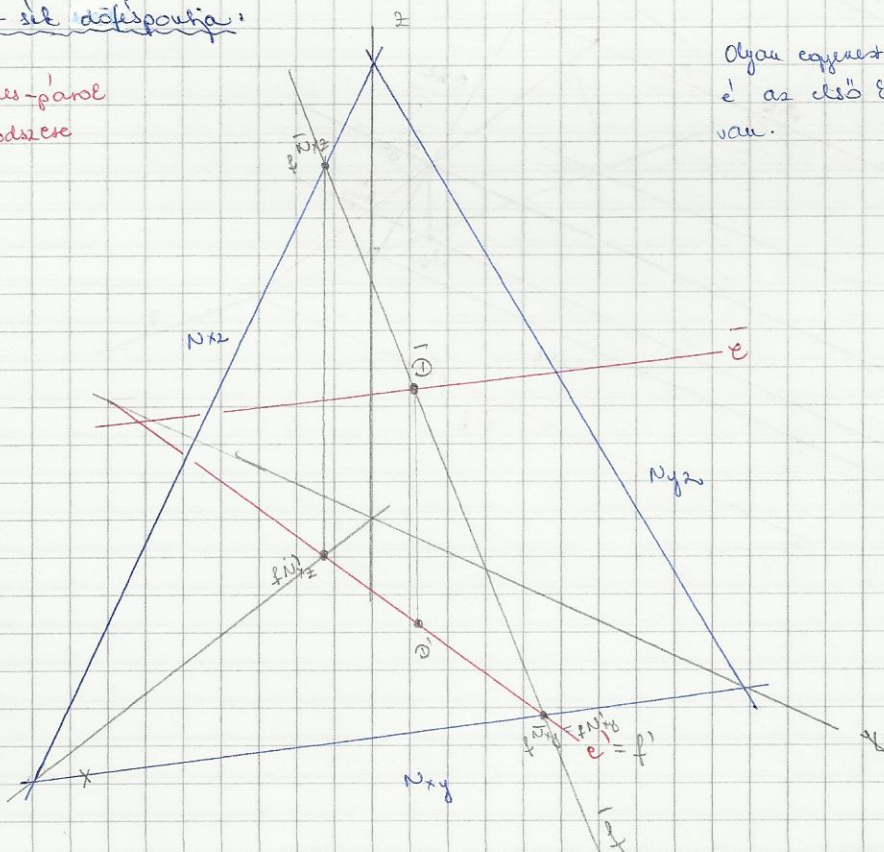 - sík döféspontja:
es-párok
ódszere
Olyan egyenest
é az első
van.
z
f N̄xz
Nxz
D̄
ē
Nyz
fN'xz
D'
f N̄xy = fN'xy
e' = f'
x
Nxy
y
f̄